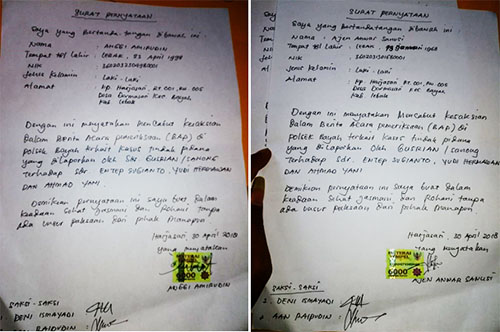 SURAT PERNYATAAN
Saya yang bertandatangan dibawah ini :
Nama : ANGGI AMIRUDIN
Tempat tgl lahir : LEBAK,
NIK :
Jenis Kelamin : LAKI - LAKI
Alamat : Kp. Harjasari, RT.001, RW.005
Desa Darmasari Kec. Bayah
Kab. Lebak
Dengan ini menyatakan Mencabut Kesaksian
Dalam Berita Acara pemeriksaan (BAP) Di
Polsek Bayah terkait kasus tindak pidana
yang dilaporkan oleh Sdr. GUSRIAN / SANONG
Terhadap Sdr ENTEP SUGIANTO, YUDI HERMAWAN
DAN AHMAD YANI.
Demikian pernyataan ini saya buat Dalam
keadaan Sehat Jasmani dan Rohani tanpa
ada unsur paksaan dari pihak manapun
Harjasari, 30 April 2018
Yang menyatakan
METERAI TEMPEL
6000
ANGGI AMIRUDIN
SAKSI - SAKSI
DENI ISMAYADI
SURAT PERNYATAAN
Saya yang bertandatangan dibawah ini :
Nama : AJEN ANWAR SANUSI
Tempat tgl lahir : LEBAK,
NIK :
Jenis Kelamin : LAKI - LAKI
Alamat : Kp. Harjasari, RT.001, RW.005
Desa Darmasari Kec. Bayah
Kab. Lebak
Dengan ini menyatakan Mencabut Kesaksian
Dalam Berita Acara Pemeriksaan (BAP) Di
Polsek Bayah terkait kasus tindak pidana
yang di Laporkan oleh GUSRIAN / Sanong
Terhadap Sdr. ENTEP SUGIANTO, YUDI HERMAWAN
DAN AHMAD YANI.
Demikian pernyataan ini saya buat dalam
keadaan Sehat Jasmani dan Rohani tanpa
ada unsur paksaan dari pihak manapun
Harjasari, 30 April 2018
Yang menyatakan
METERAI TEMPEL
6000
AJEN ANWAR SANUSI
SAKSI - SAKSI
DENI ISMAYADI
AAN RAIPUDIN